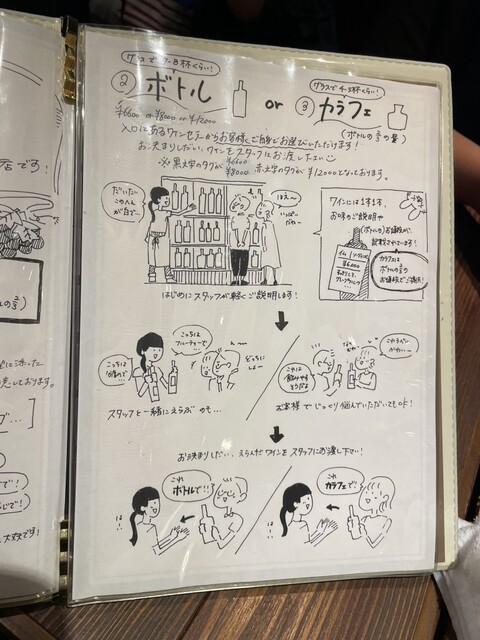 グラスで7~8杯くらい!
② ボトル
or
グラスで4~5杯くらい!
③ カラフェ
(ボトルの2/3の量)
¥6600 or ¥8000 or ¥12000
入口にあるワインセラーからお客様ご自身でお選びいただけます!
お決まりしだい、ワインをスタッフにお渡し下さい
※黒文字のタグが ¥6600 ¥8000 赤文字のタグが ¥12000となっております。
だいたい
このへん
が白で…
ほえ~
いっぱい
だね~
はじめにスタッフが軽くご説明します!
ワインには1本1本、
お味のご説明や
(ボトルの)お値段が、
記載されてます!
¥6,000
カラフェは
ボトルの2/3の
お値段でご提供!
こっちは
フルーティーで
こっちは
どっちに
しよー
スタッフと一緒にえらぶのも…
これは
飲みやす
そうだよ
お客様でじっくり悩んでいただいてもOK!
お決まりしだい、えらんだワインをスタッフにお渡し下さい!
これ
ボトルで!!
はーい
これ
カラフェで!
はーい
店です!
しております。
で!
大丈夫です!